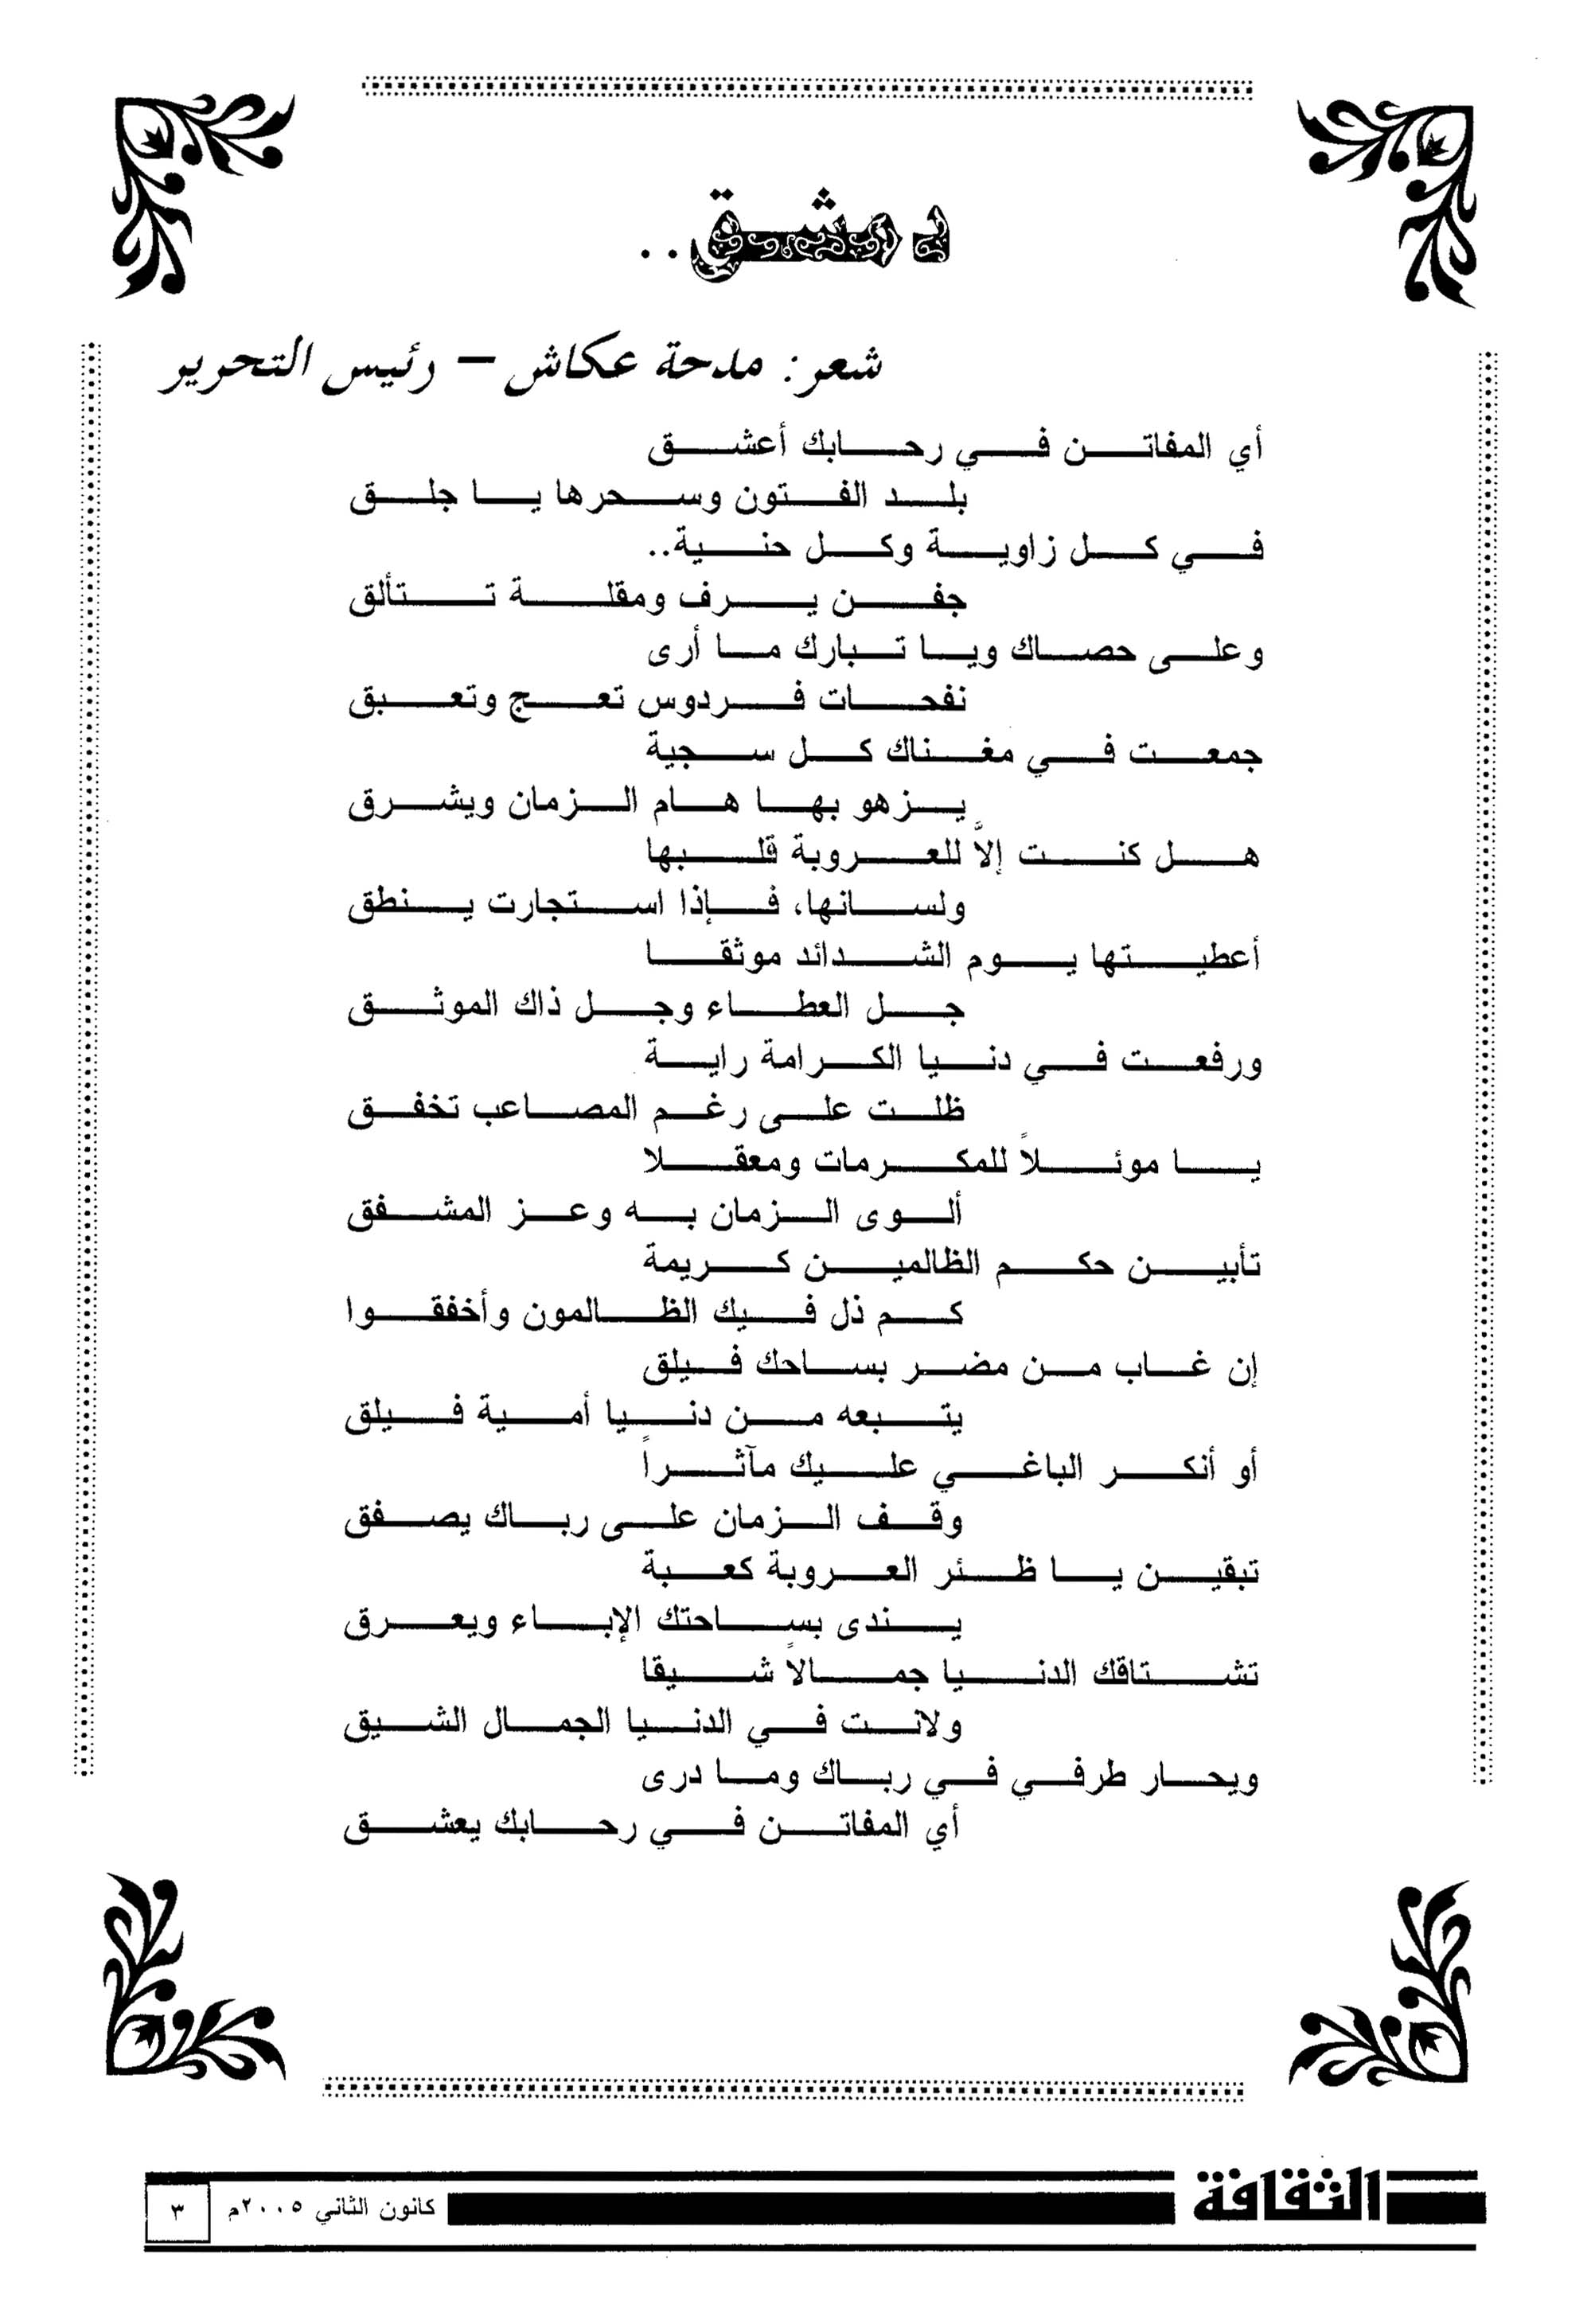 دمشق..
شعر: مدحة عكاش – رئيس التحرير
أي المفاتن في رحابك أعشق
بلد الفتون وسحرها يا جلق
في كل زاوية وكل حنية..
جفن يرف ومقلة تتألق
وعلى حصاك ويا تبارك ما أرى
نفحات فردوس تعج وتعبق
جمعت في مغناك كل سجية
يزهو بها هام الزمان ويشرق
هل كنت إلاَّ للعروبة قلبها
ولسانها، فإذا استجارت ينطق
أعطيتها يوم الشدائد موثقا
جل العطاء وجل ذاك الموثق
ورفعت في دنيا الكرامة راية
ظلت على رغم المصاعب تخفق
يا موئلاً للمكرمات ومعقلا
ألوى الزمان به وعز المشفق
تأبين حكم الظالمين كريمة
كم ذل فيك الظالمون وأخفقوا
إن غاب من مضر بساحك فيلق
يتبعه من دنيا أمية فيلق
أو أنكر الباغي عليك مآثراً
وقف الزمان على رباك يصفق
تبقين يا ظئر العروبة كعبة
يندى بساحتك الإباء ويعرق
تشتاقك الدنيا جمالاً شيقا
ولانت في الدنيا الجمال الشيق
ويحار طرفي في رباك وما درى
أي المفاتن في رحابك يعشق
الثقافة
كانون الثاني ٢٠٠٥م
٣